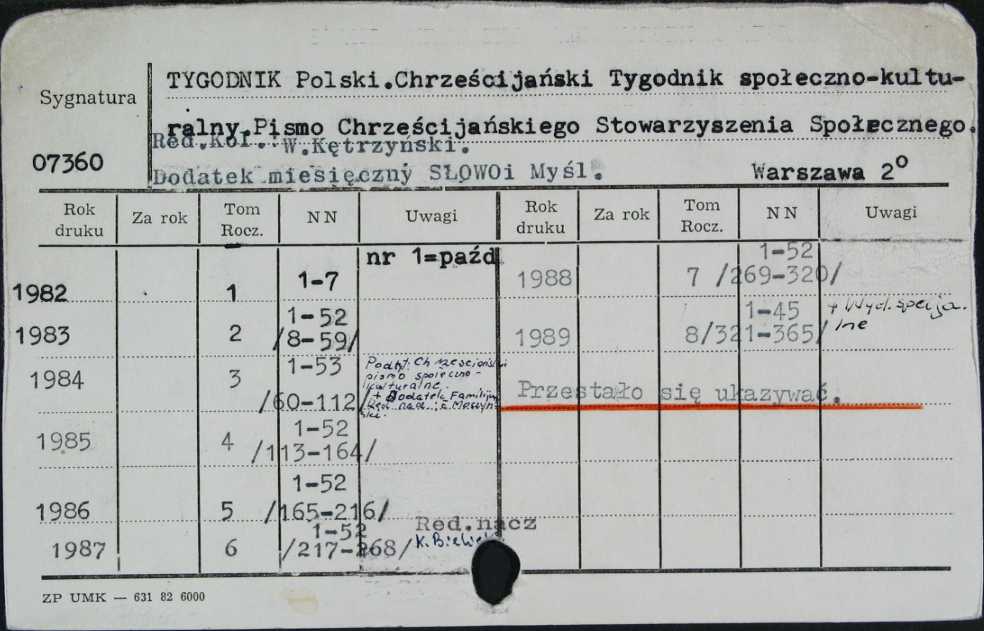 Sygnatura
07360
TYGODNIK Polski.Chrześcijański Tygodnik społeczno-kultu-
ralny.Pismo Chrześcijańskiego Stowarzyszenia Społecznego.
Red.Kol.: W.Kętrzyński.
Dodatek miesięczny SŁOWOi Myśl. Warszawa 2º
Rok druku Za rok Tom Rocz. NN Uwagi Rok druku Za rok Tom Rocz. NN Uwagi
nr 1=paźd
1982 1 1-7
1983 2 1-52 /8-59/
1984 3 1-53 /60-112/ pismo społeczno-
kulturalne.
+ Dodatek
1985 4 1-52 /113-164/
1986 5 1-52 /165-216/
1987 6 1-52 /217-268/ Red.nacz
K.
1988 7 1-52 /269-320/
1989 8 1-45 /321-365/ + Wyd.specja.
lne
Przestało się ukazywać.
ZP UMK — 631 82 6000